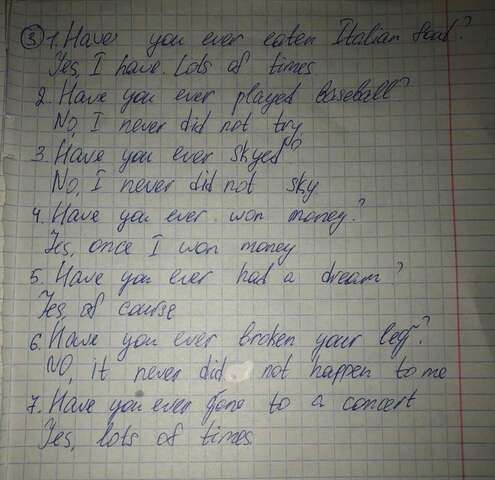 ③ 1. Have you ever eaten Italian food?
Yes, I have. Lots of times
2. Have you ever played baseball?
No, I never did not try
3. Have you ever skyed?
No, I never did not sky
4. Have you ever won money?
Yes, once I won money
5. Have you ever had a dream?
Yes, of course
6. Have you ever broken your leg?
NO, it never did not happen to me
7. Have you ever gone to a concert
Yes, lots of times